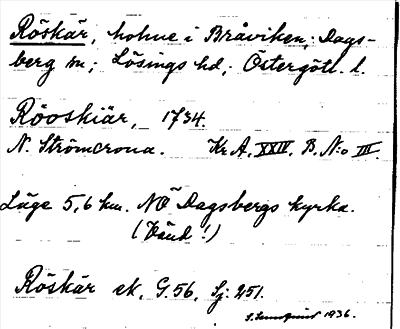 Röskär, holme i Bråviken; Dags-
berg sn; Lösings hd,; Östergötl. l.
Röoskiär, 1734.
N. Strömcrona. Kr A, XXIV. B. N:o III.
Läge 5,6 km. NÖ Dagsbergs kyrka.
(Vänd!)
Röskär ek. G. 56, Sj: 251.
1936.